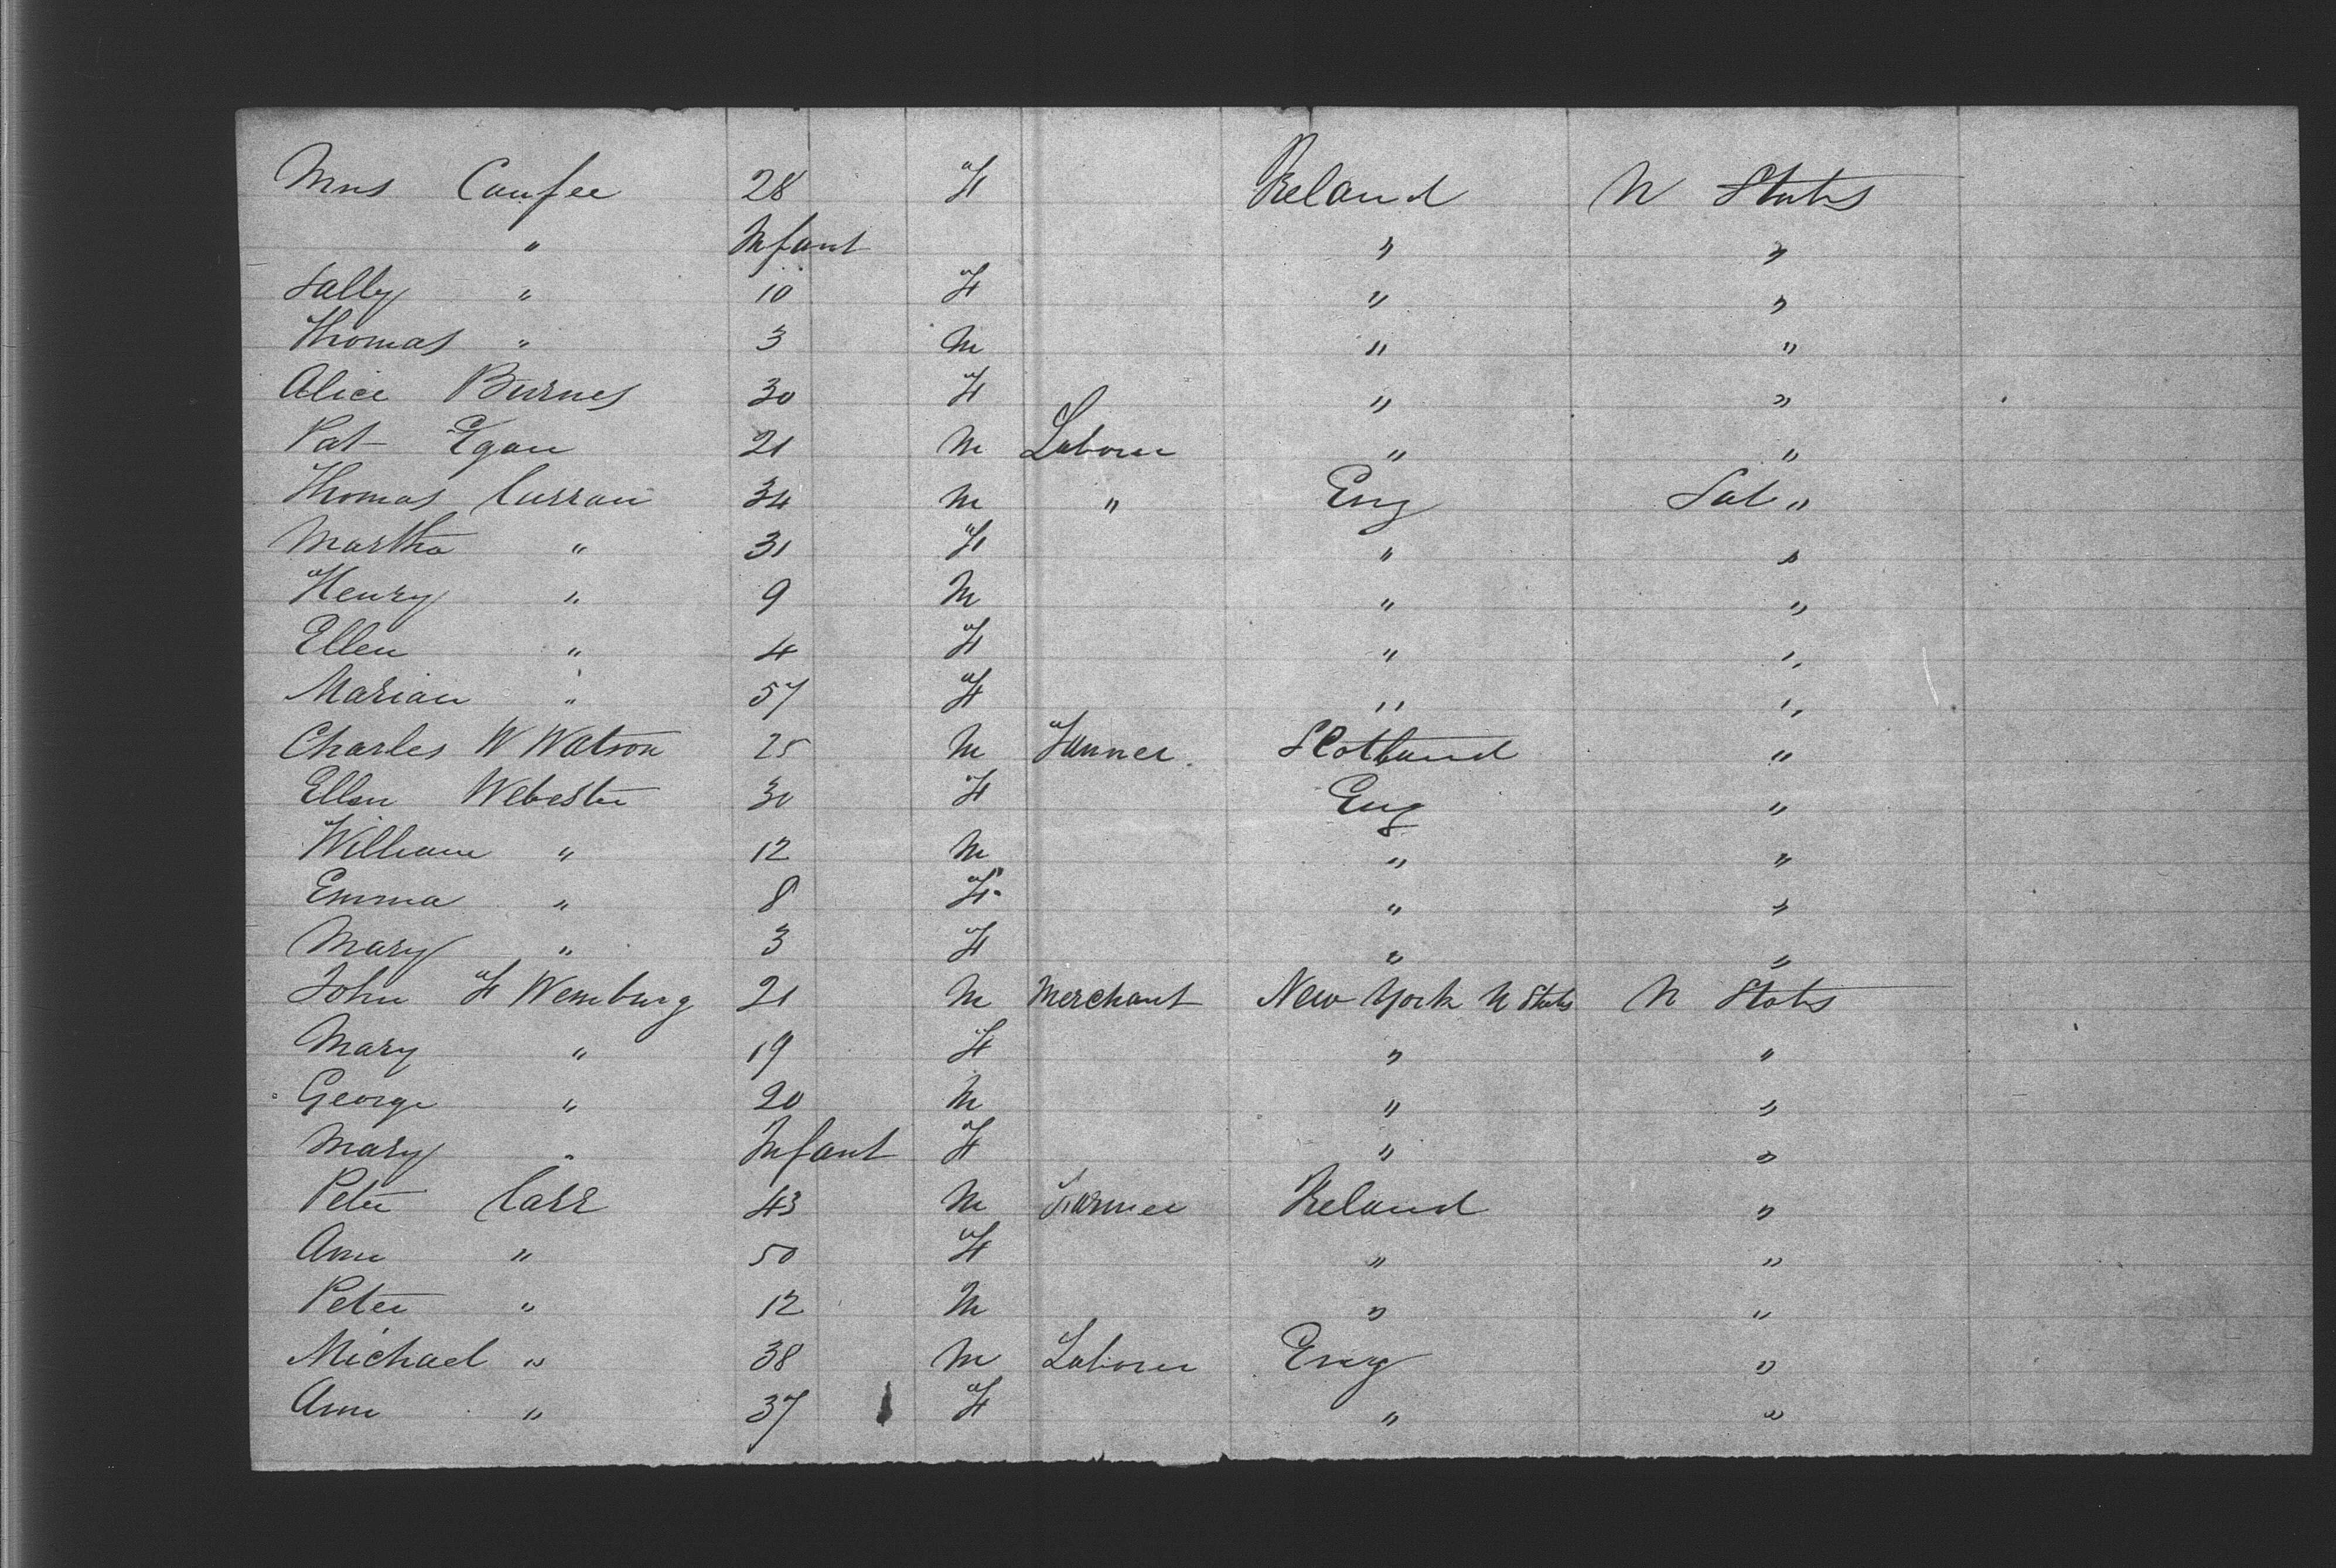 Mrs Caufee 28 F Ireland U States
" Infant " "
Sally " 10 F " "
Thomas " 3 M " "
Alice Burnes 30 F " "
Pat Egan 21 M Laborer " "
Thomas Curran 34 M " Eng "
Martha " 31 F " "
Henry " 9 M " "
Ellen " 4 F " "
Marian " 57 F " "
Charles W Watson 25 M Scotland "
Ellen Webester 30 F Eng "
William " 12 M " "
Emma " 8 F " "
Mary " 3 F " "
John F Wemburg 21 M Merchant New York U States U States
Mary " 19 F " "
George " 20 M " "
Mary " Infant F " "
Peter Carr 43 M Farmer Ireland "
Ann " 50 F " "
Peter " 12 M " "
Michael " 38 M Laborer Eng "
Ann " 37 F " "